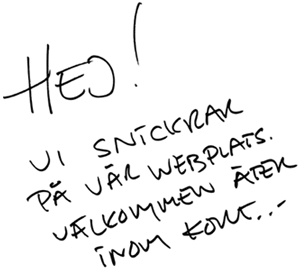 HEJ!
VI SNICKRAR
PÅ VÅR WEBPLATS.
VÄLKOMMEN ÅTER
INOM KORT...